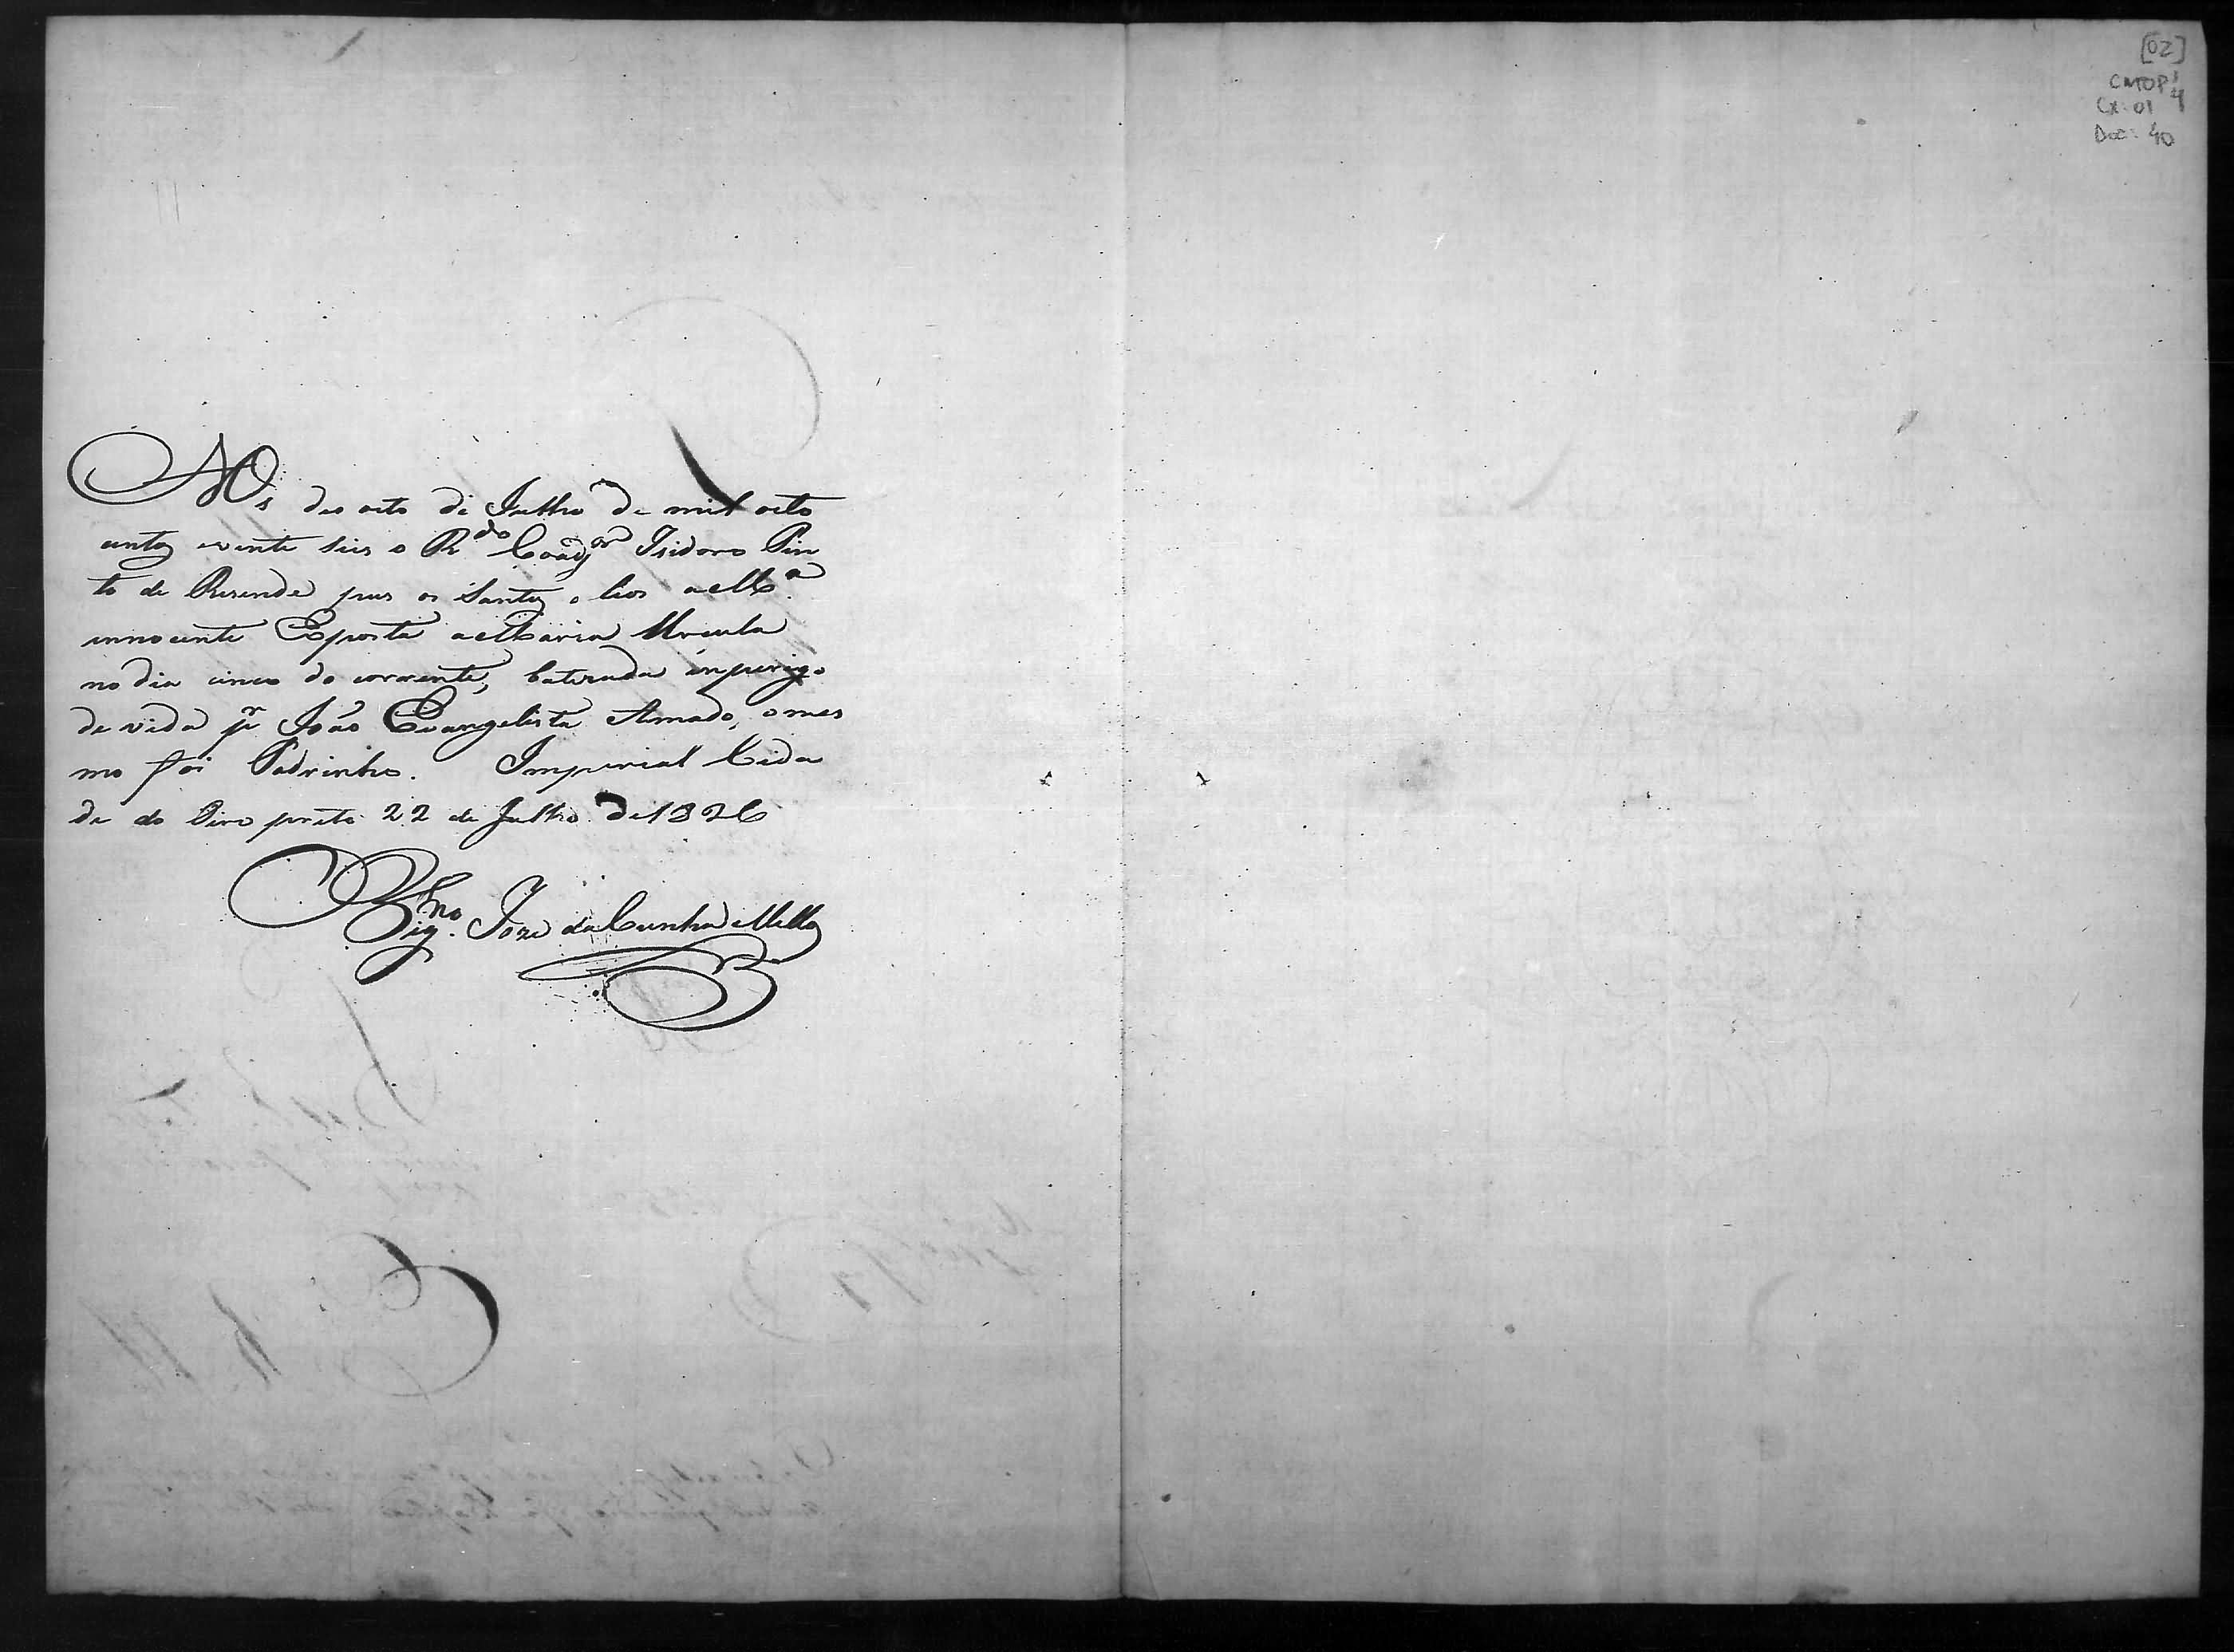 [02]
CMOP
Cx: 01
Doc: 40
AOs des oito de Julho de mil oito
centos evinte seis o R.do Coadj.or Isidoro Pin
to de Resende pus os Santos olios a M.a
innocente Exposta a Maria Urcula
no dia cinco do corrente, batizada inperigo
de vida p.r João Evangelista Amado, omes
mo foi Padrinho. Imperial Cida
de do Oiro preto 22 de Julho de 1826
Vig.ro Joze da Cunha Mello